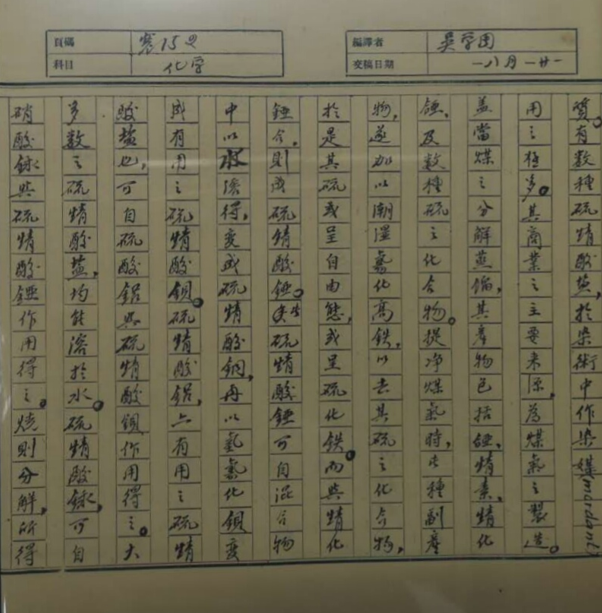 頁碼
科目 化学
編譯者 吴学周
交稿日期 一八月一廿一
質。有數種硫情酸盐,於染術中作染媒(mordant)
用之極多。其商業之主要來源,為煤氣之製造。
盖當煤之分解蒸餾,其產物包括錏,情素,情化
錏,及數種硫之化合物。提净煤氣時,此種副產
物,遂加以潮溼氫化高鉄,以去其硫之化合物,
於是其硫或呈自由態,或呈硫化鉄。而與情化
錏合,則成硫情酸錏。硫情酸錏可自混合物
中以水溶得,变成硫情酸銅,再以氫氧化鋇变
成有用之硫情酸鋇。硫情酸鋁,亦有用之硫情
酸盐也,可自硫酸鋁與硫情酸鋇作用得之。大
多數之硫情酸盐,均能溶於水。硫情酸銾,可自
硝酸銾與硫情酸錏作用得之。燒則分解,所得